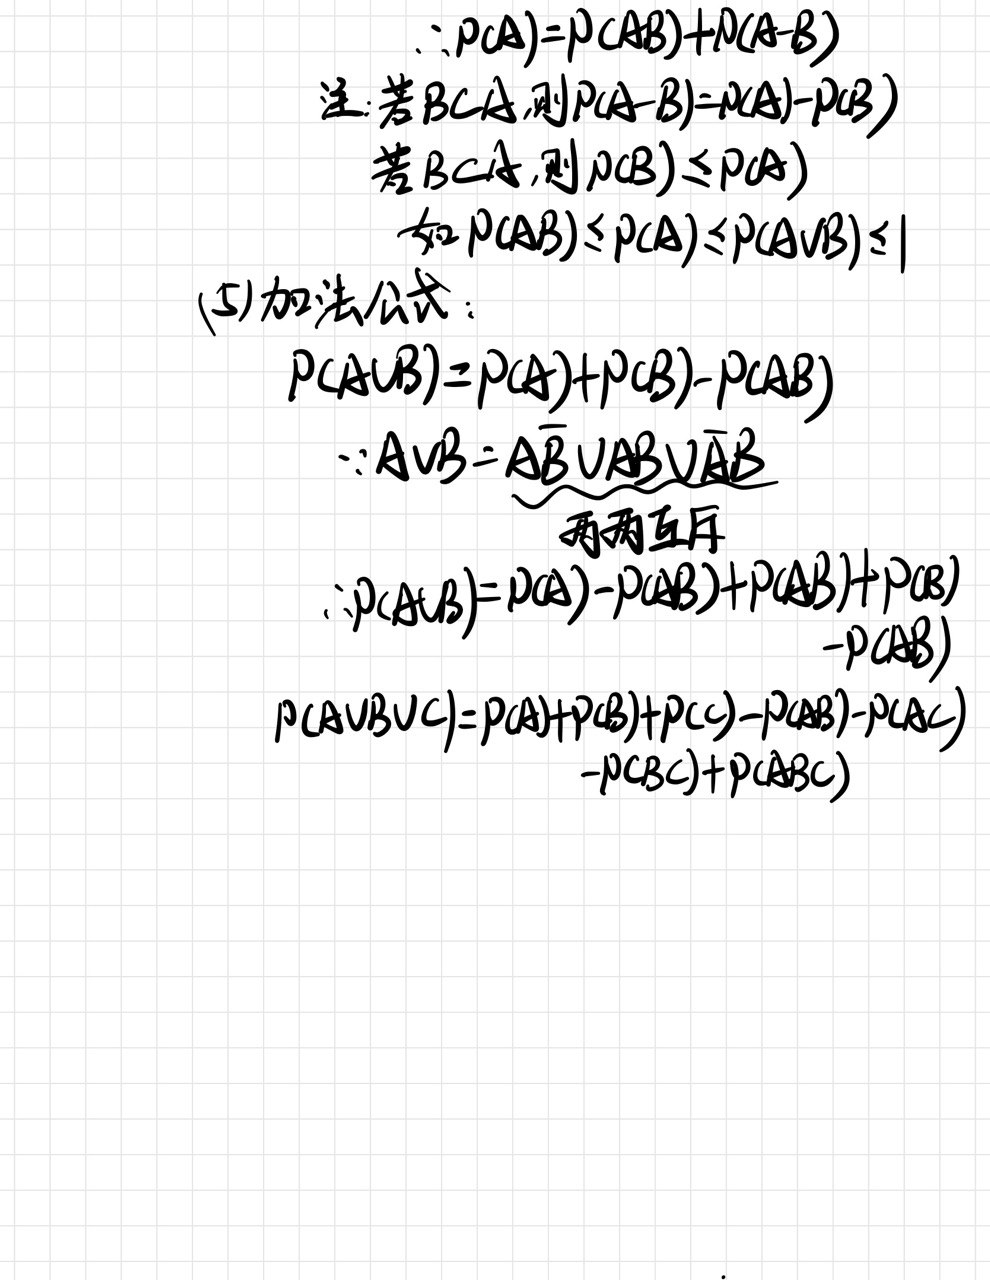 ∴P(A)=P(AB)+P(A-B)
注:若B⊂A,则P(A-B)=P(A)-P(B)
若B⊂A,则P(B)≤P(A)
如P(AB)≤P(A)≤P(A∪B)≤1
(5)加法公式:
P(A∪B)=P(A)+P(B)-P(AB)
∵A∪B=AB̅∪AB∪A̅B
两两互斥
∴P(A∪B)=P(A)-P(AB)+P(AB)+P(B)
-P(AB)
P(A∪B∪C)=P(A)+P(B)+P(C)-P(AB)-P(AC)
-P(BC)+P(ABC)